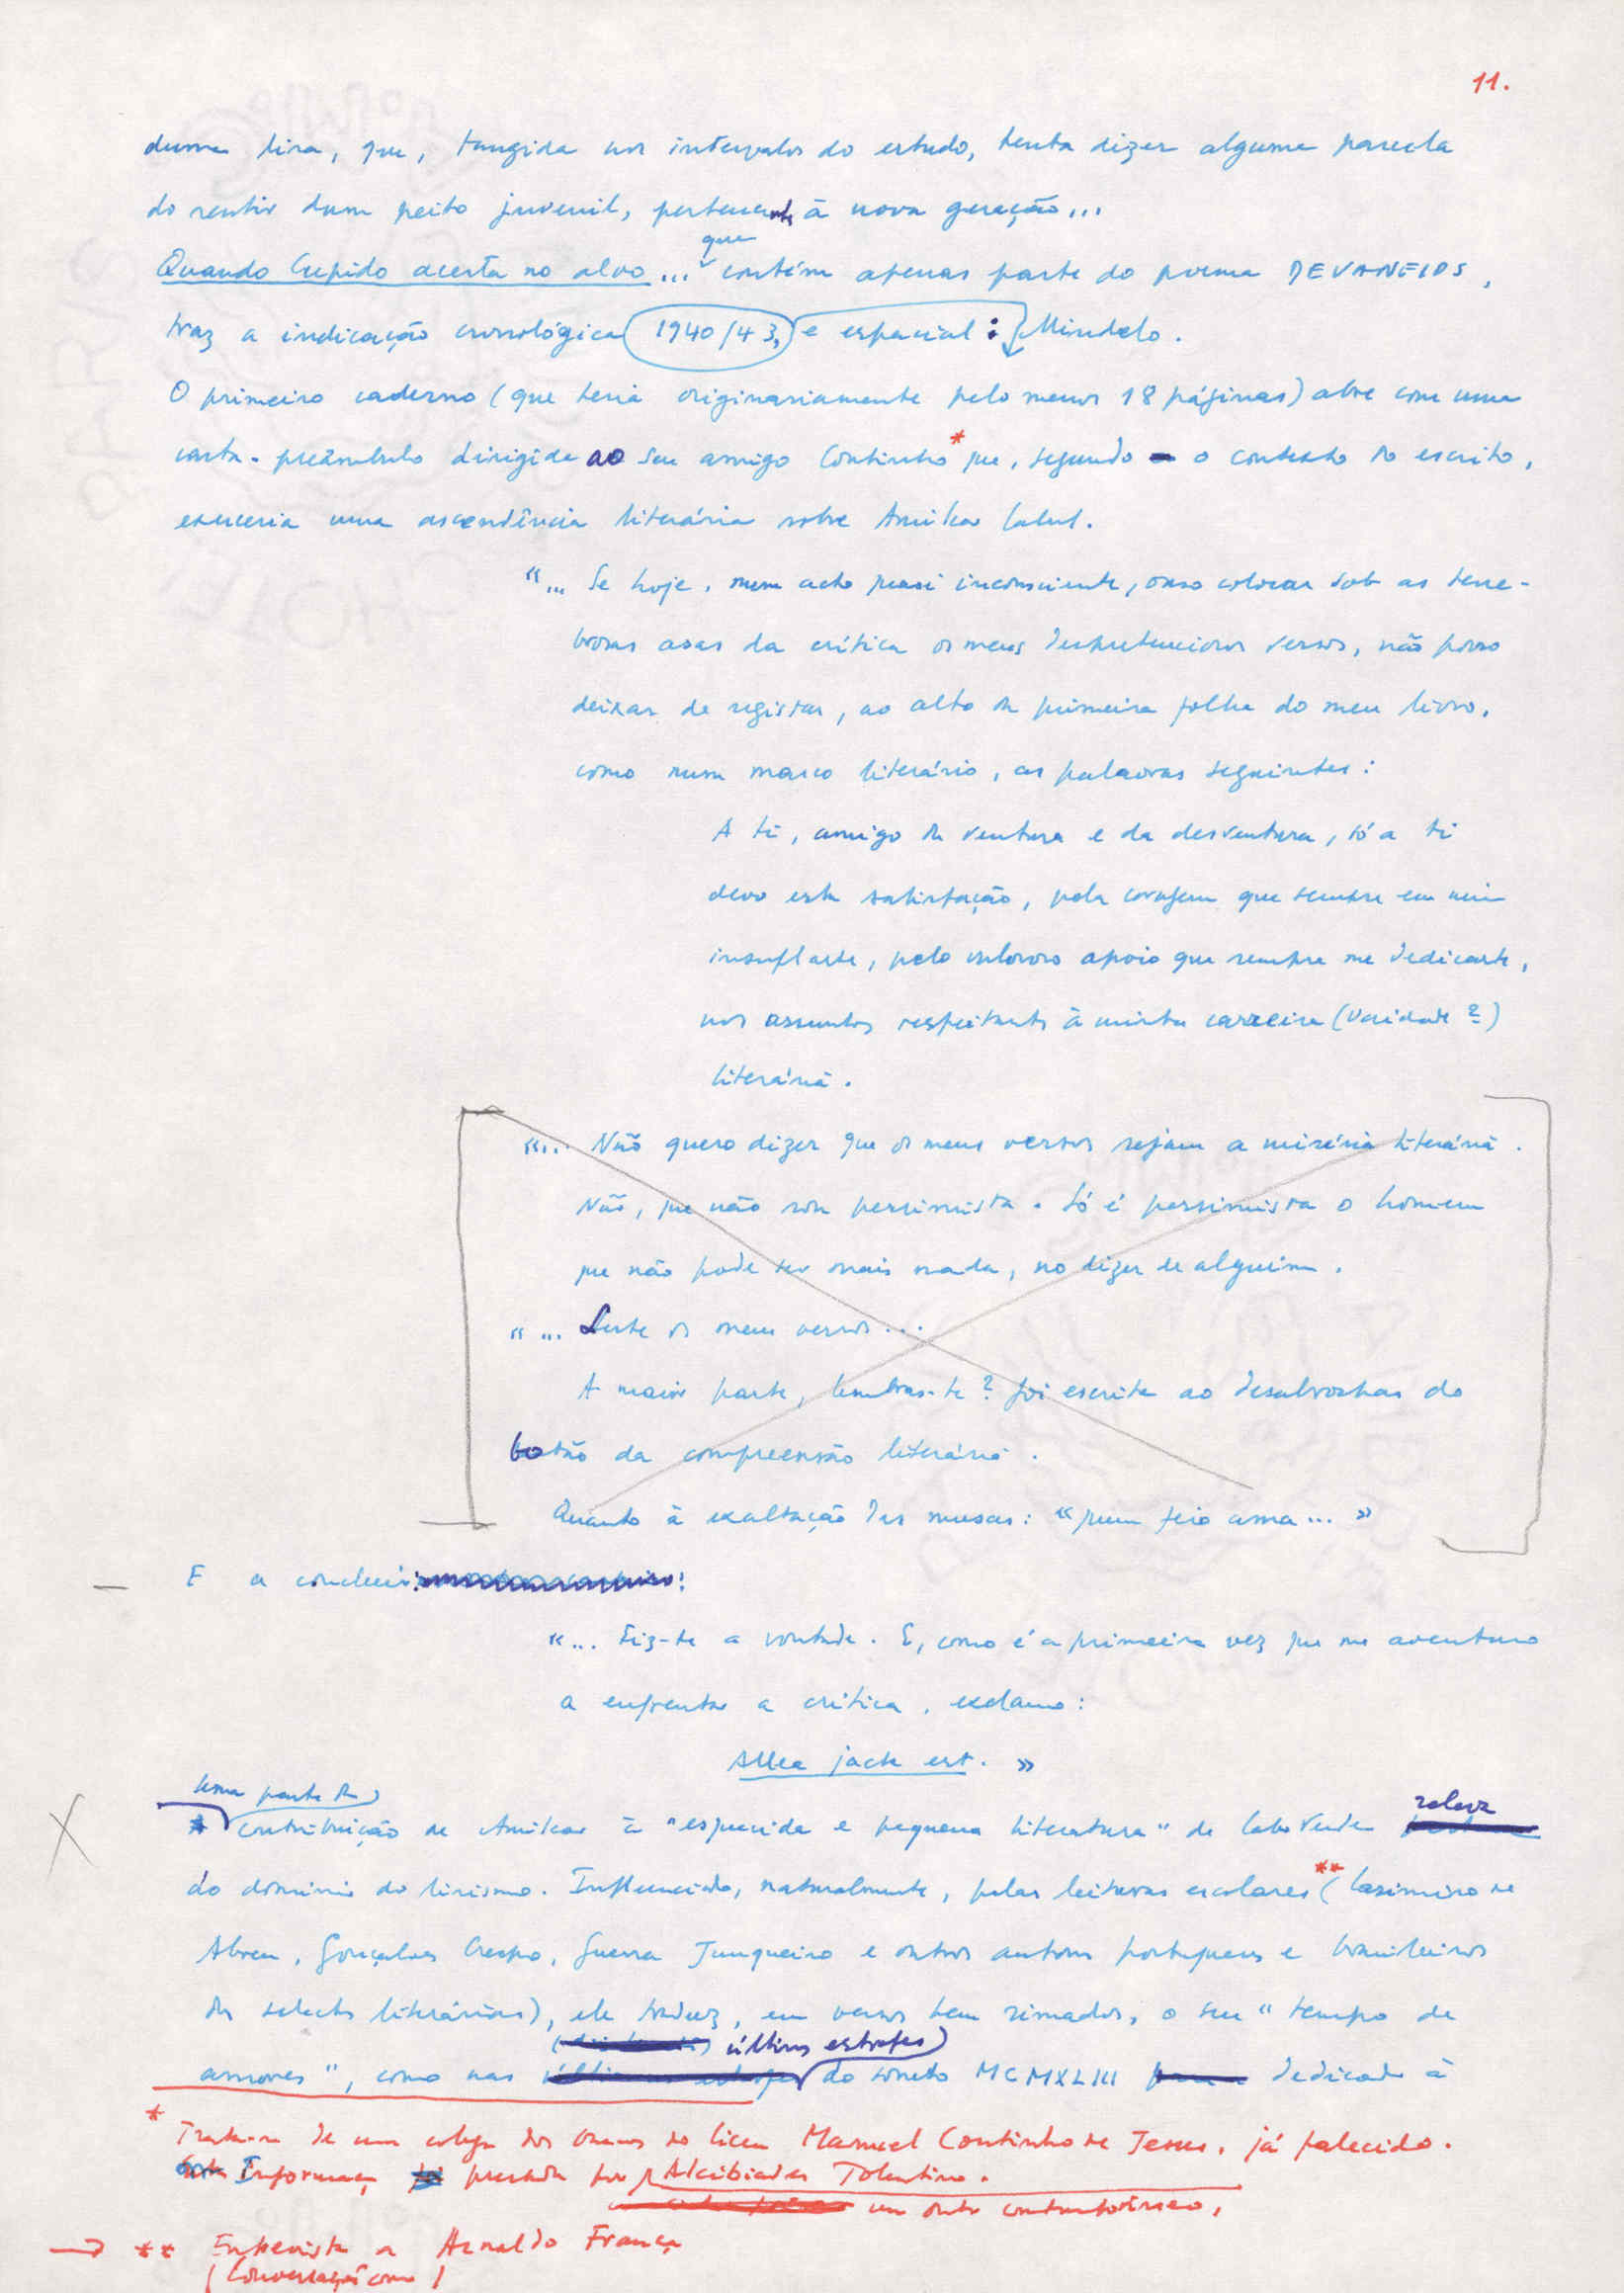 11.
duma lira, que, tangida nos intervalos do estudo, tenta dizer alguma parcela
do sentir dum peito juvenil, pertencente à nova geração...
que
Quando Cupido acerta no alvo... contém apenas parte do poema DEVANEIOS,
traz a indicação cronológica 1940/43, e espacial: Mindelo.
O primeiro caderno (que teria originariamente pelo menos 18 páginas) abre com uma
carta-preâmbulo dirigida ao seu amigo Coutinho* que, segundo o contexto do escrito,
exerceria uma ascendência literária sobre Amílcar Cabral.
"... Se hoje, num acto quasi inconsciente, ouso colocar sob as tene-
brosas asas da crítica os meus despretenciosos versos, não posso
deixar de registar, ao alto da primeira folha do meu livro,
como num marco literário, as palavras seguintes:
A ti, amigo da ventura e da desventura, só a ti
devo esta satisfação, pela coragem que sempre em mim
insuflaste, pelo valoroso apoio que sempre me dedicaste,
nos assuntos respeitantes à minha carreira (vaidade?)
literária.
"... Não quero dizer que os meus versos sejam a miséria literária.
Não, que não sou pessimista. Só é pessimista o homem
que não pode ser mais nada, no dizer de alguém.
"... Leste os meus versos...
A maior parte, lembras-te? foi escrita ao desabrochar do
botão da compreensão literária.
Quanto à exaltação das musas: "quem feio ama..."
E a concluir:
"... Fiz-te a vontade. E, como é a primeira vez que me aventuro
a enfrentar a crítica, exclamo:
Allea jacta est. »
Uma parte da
releva
contribuição de Amílcar à "esquecida e pequena literatura" de Cabo Verde
do domínio do lirismo. Influenciado, naturalmente, pelas leituras escolares** (Casimiro de
Abreu, Gonçalves Crespo, Guerra Junqueiro e outros autores portugueses e brasileiros
das selectas literárias), ele traduz, em versos bem rimados, o seu "tempo de
últimas estrofes)
amores", como nas do soneto MCMXLIII dedicado à
* Trata-se de um colega dos bancos do liceu Manuel Coutinho de Jesus, já falecido.
Informação prestada por Alcibíades Tolentino.
um outro contemporâneo,
→ ** Entrevista a Arnaldo França
(Conversação com)